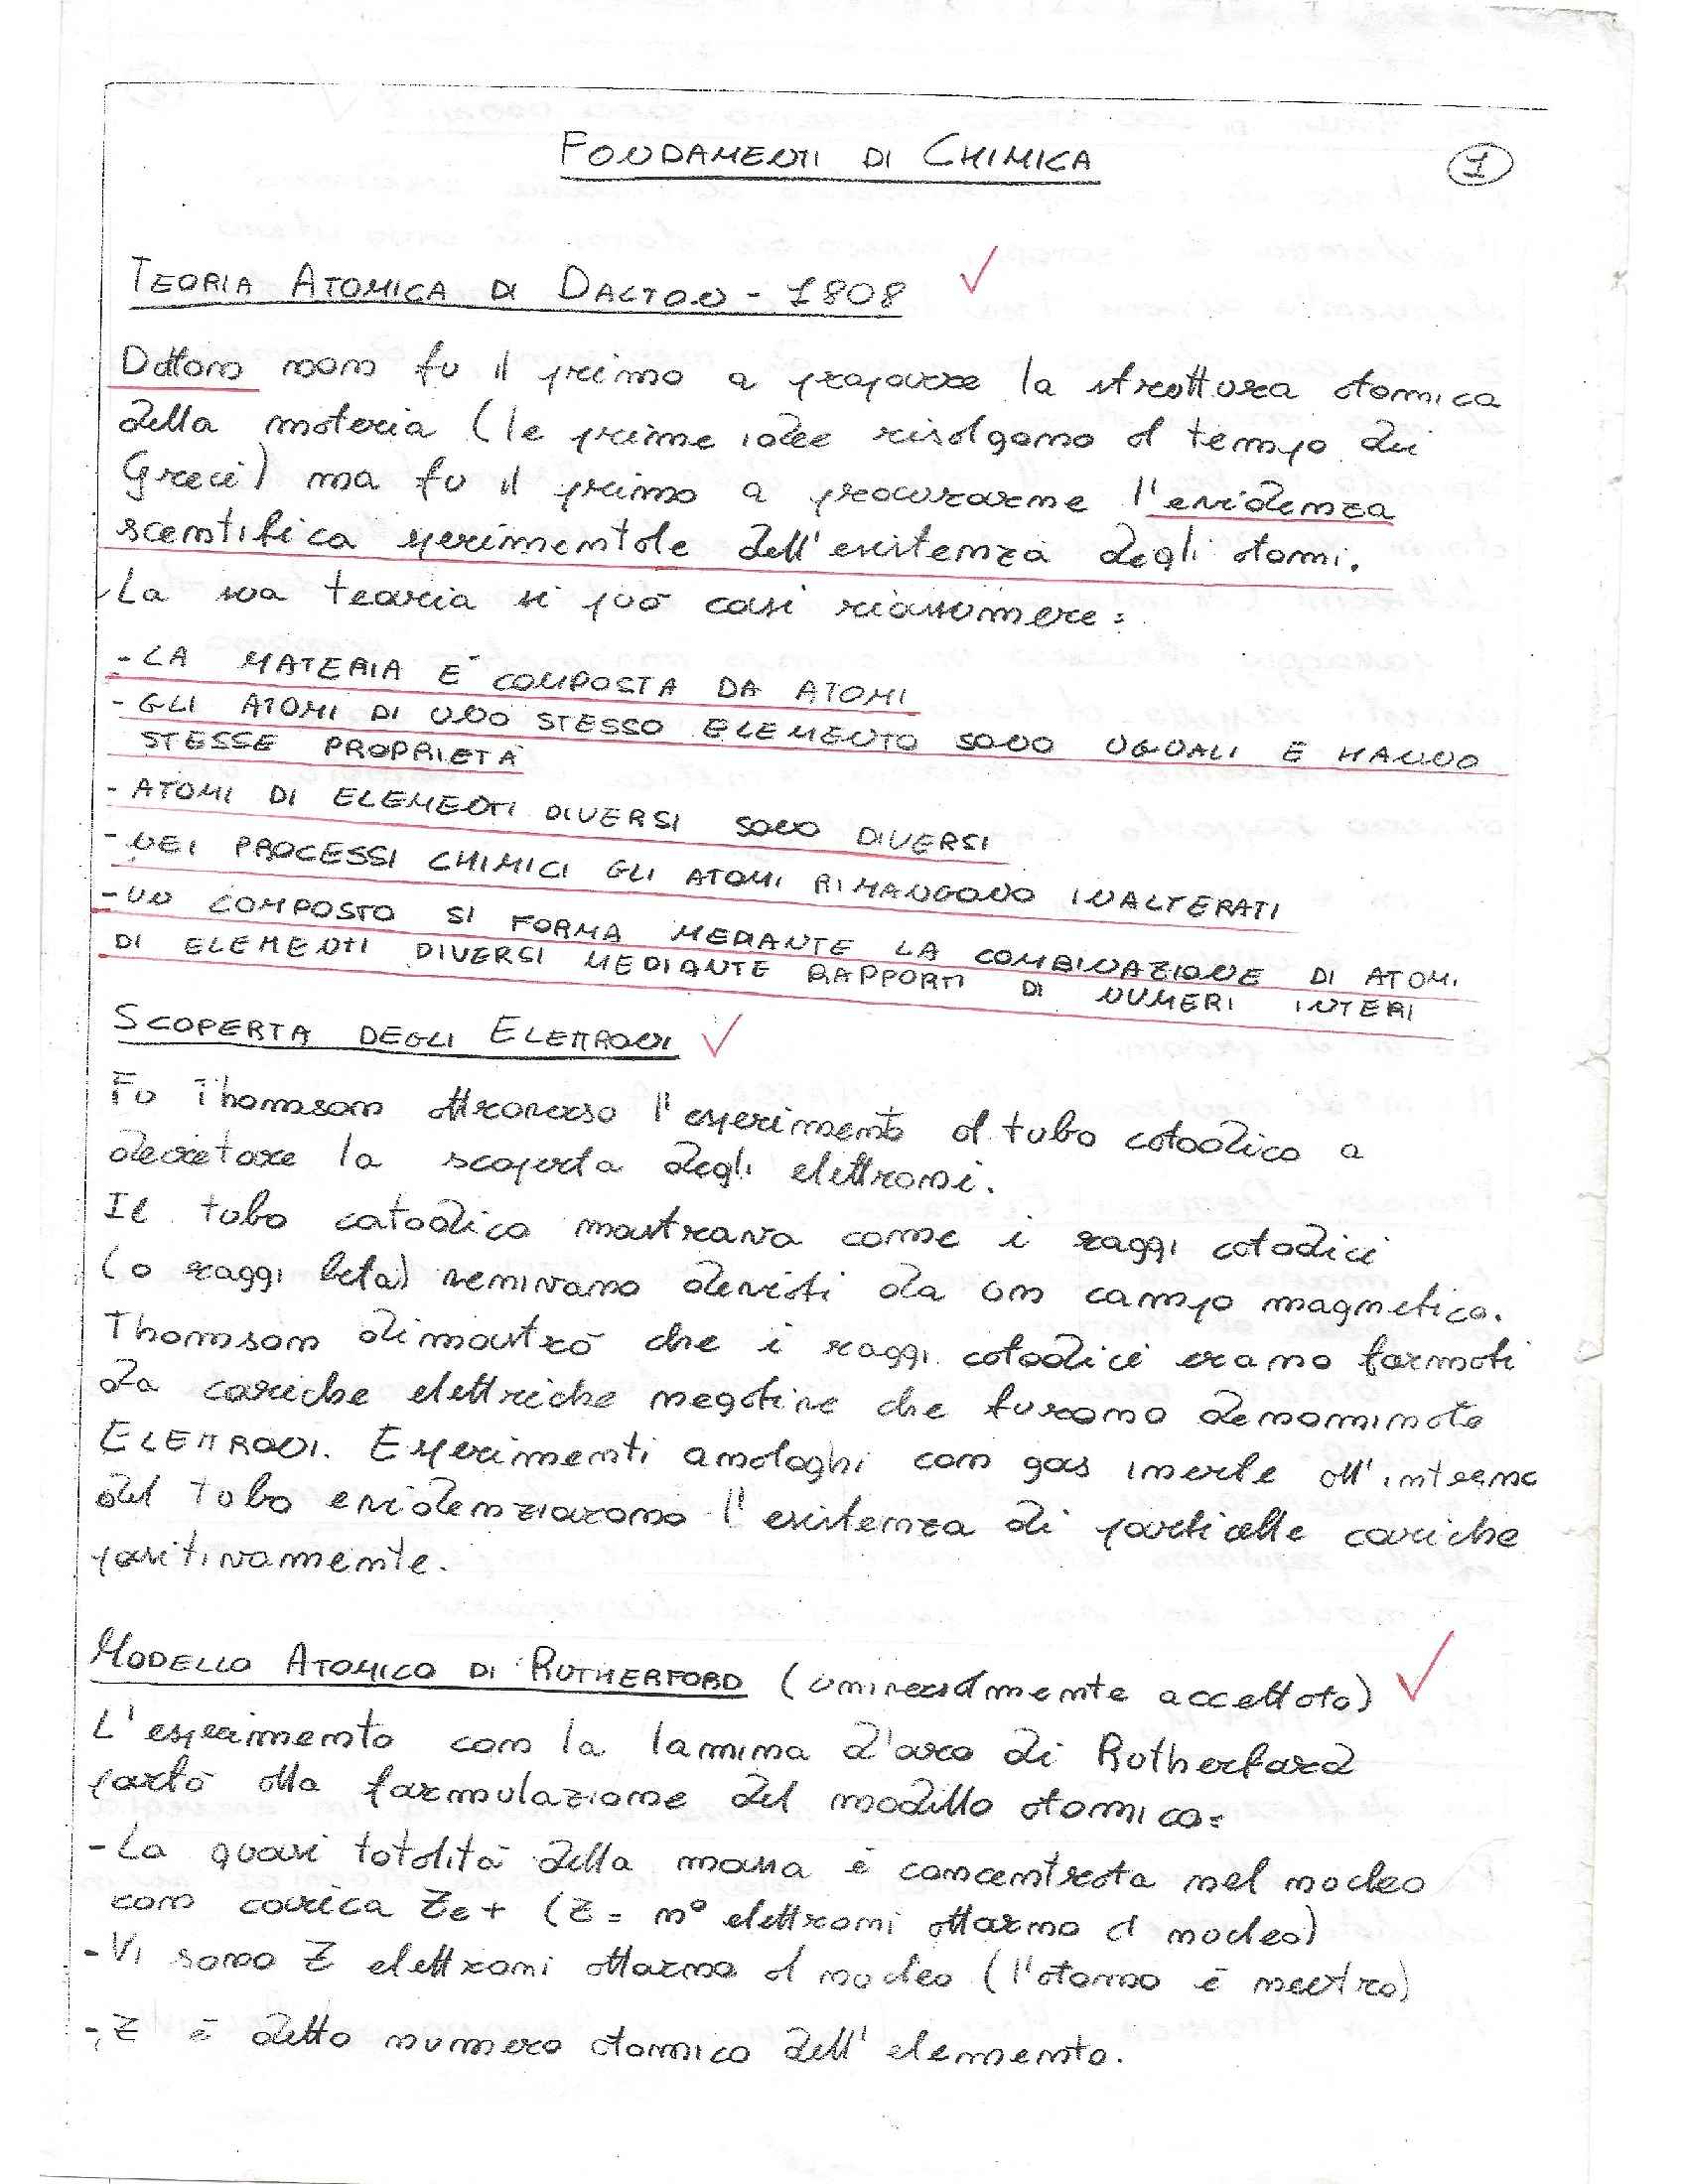 FONDAMENTI DI CHIMICA
1
TEORIA ATOMICA DI DALTON - 1808
Dalton non fu il primo a proporre la struttura atomica
della materia (le prime idee risalgono al tempo dei
Greci) ma fu il primo a procurarne l'evidenza
scentifica sperimentale dell'esistenza degli atomi.
La sua teoria si può così riassumere:
- LA MATERIA È COMPOSTA DA ATOMI
- GLI ATOMI DI UNO STESSO ELEMENTO SONO UGUALI E HANNO
STESSE PROPRIETÀ
- ATOMI DI ELEMENTI DIVERSI SONO DIVERSI
- NEI PROCESSI CHIMICI GLI ATOMI RIMANGONO INALTERATI
- UN COMPOSTO SI FORMA MEDIANTE LA COMBINAZIONE DI ATOMI
DI ELEMENTI DIVERSI MEDIANTE RAPPORTI DI NUMERI INTERI
SCOPERTA DEGLI ELETTRONI
Fu Thomson attraverso l'esperimento al tubo catodico a
decretare la scoperta degli elettroni.
Il tubo catodico mostrava come i raggi catodici
(o raggi beta) venivano deviati da un campo magnetico.
Thomson dimostrò che i raggi catodici erano formati
da cariche elettriche negative che furono denominate
ELETTRONI. Esperimenti analoghi con gas inerte all'interno
del tubo evidenziarono l'esistenza di particelle cariche
positivamente.
MODELLO ATOMICO DI RUTHERFORD (universalmente accettato)
L'esperimento con la lamina d'oro di Rutherford
portò alla formulazione del modello atomico:
- La quasi totalità della massa è concentrata nel nucleo
con carica Ze+ (Z = n° elettroni attorno al nucleo)
- Vi sono Z elettroni attorno al nucleo (l'atomo è neutro)
- Z è detto numero atomico dell'elemento.